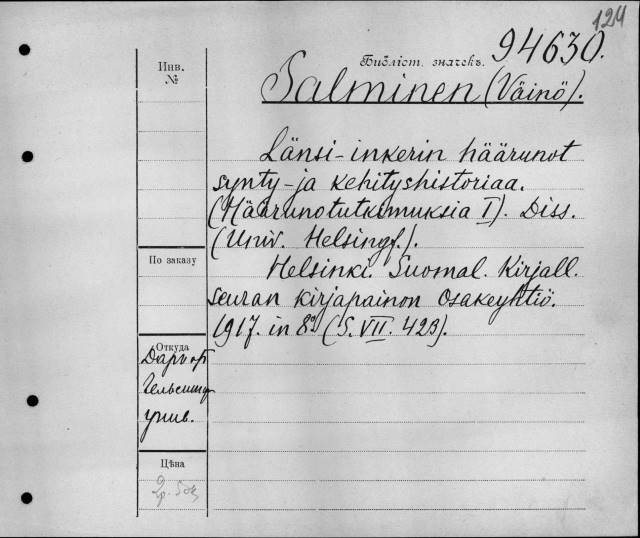 124
94630.
Инв.
№
Библіот. значекъ.
Salminen (Väinö).
Länsi-inkerin häärunot
synty- ja kehityshistoriaa.
(Häärunotutkimuksia I). Diss.
(Univ. Helsingf.).
По заказу
Helsinki. Suomal. Kirjall.
Seuran kirjapainon Osakeyhtiö.
1917. in 8° (S. VII. 423).
Откуда
Даръ от
Гельсингф
унив.
Цѣна
2р. 50к